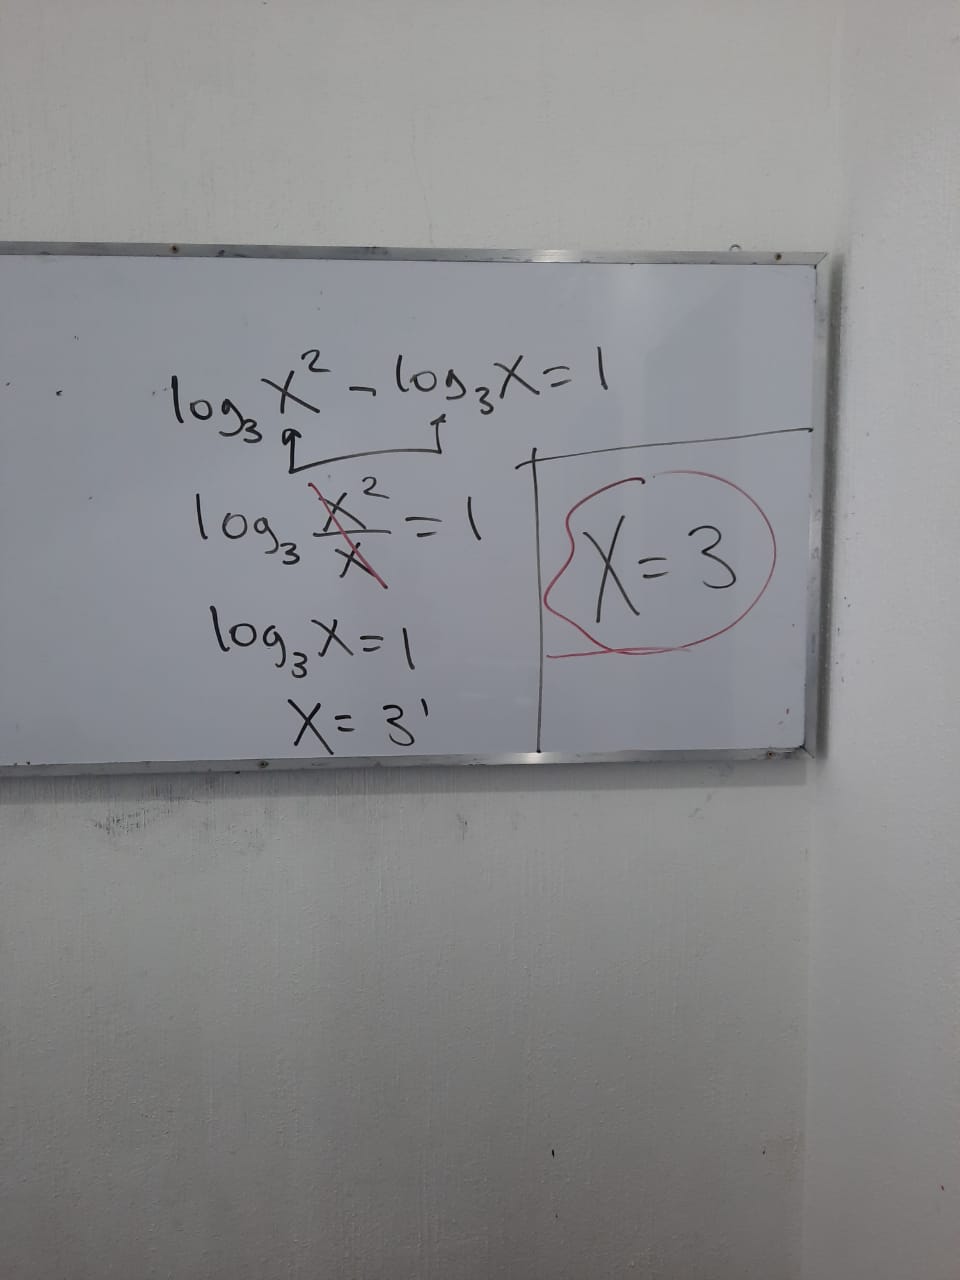 log₃ x² - log₃ x = 1
log₃ x²/x = 1
log₃ x = 1
x = 3¹
x = 3